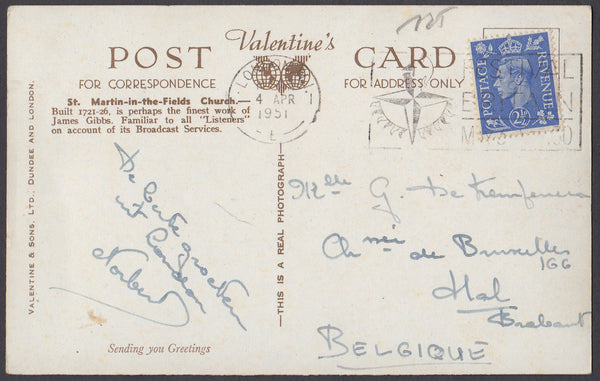 125
Valentine's
POST CARD
FOR CORRESPONDENCE
FOR ADDRESS ONLY
St. Martin-in-the-Fields Church.
Built 1721-26, is perhaps the finest work of
James Gibbs. Familiar to all "Listeners"
on account of its Broadcast Services.
VALENTINE & SONS, LTD., DUNDEE AND LONDON.
THIS IS A REAL PHOTOGRAPH
LONDON
4 APR
1951
POSTAGE REVENUE
2½D
De beste groeten
uit London
Norbert
Sending you Greetings
Mlle G. De
Ch. sée de Bruxelles
166
Hal
Brabant
BELGIQUE